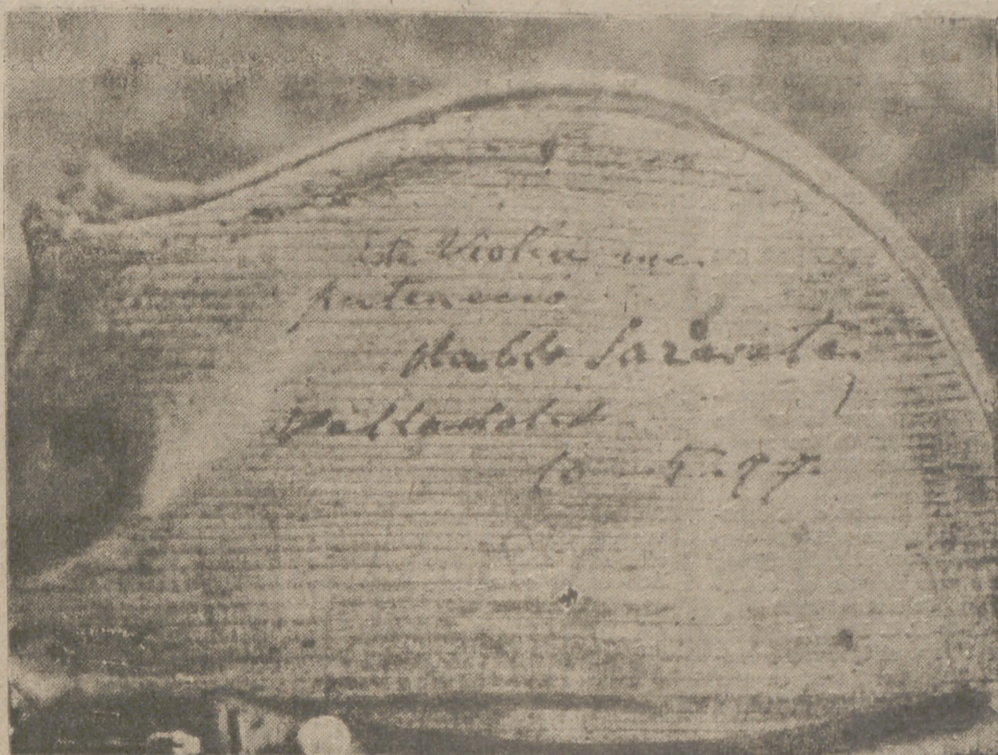 Este Violin me
pertenecio
Pablo Sarasate,
Valladolid
5-97